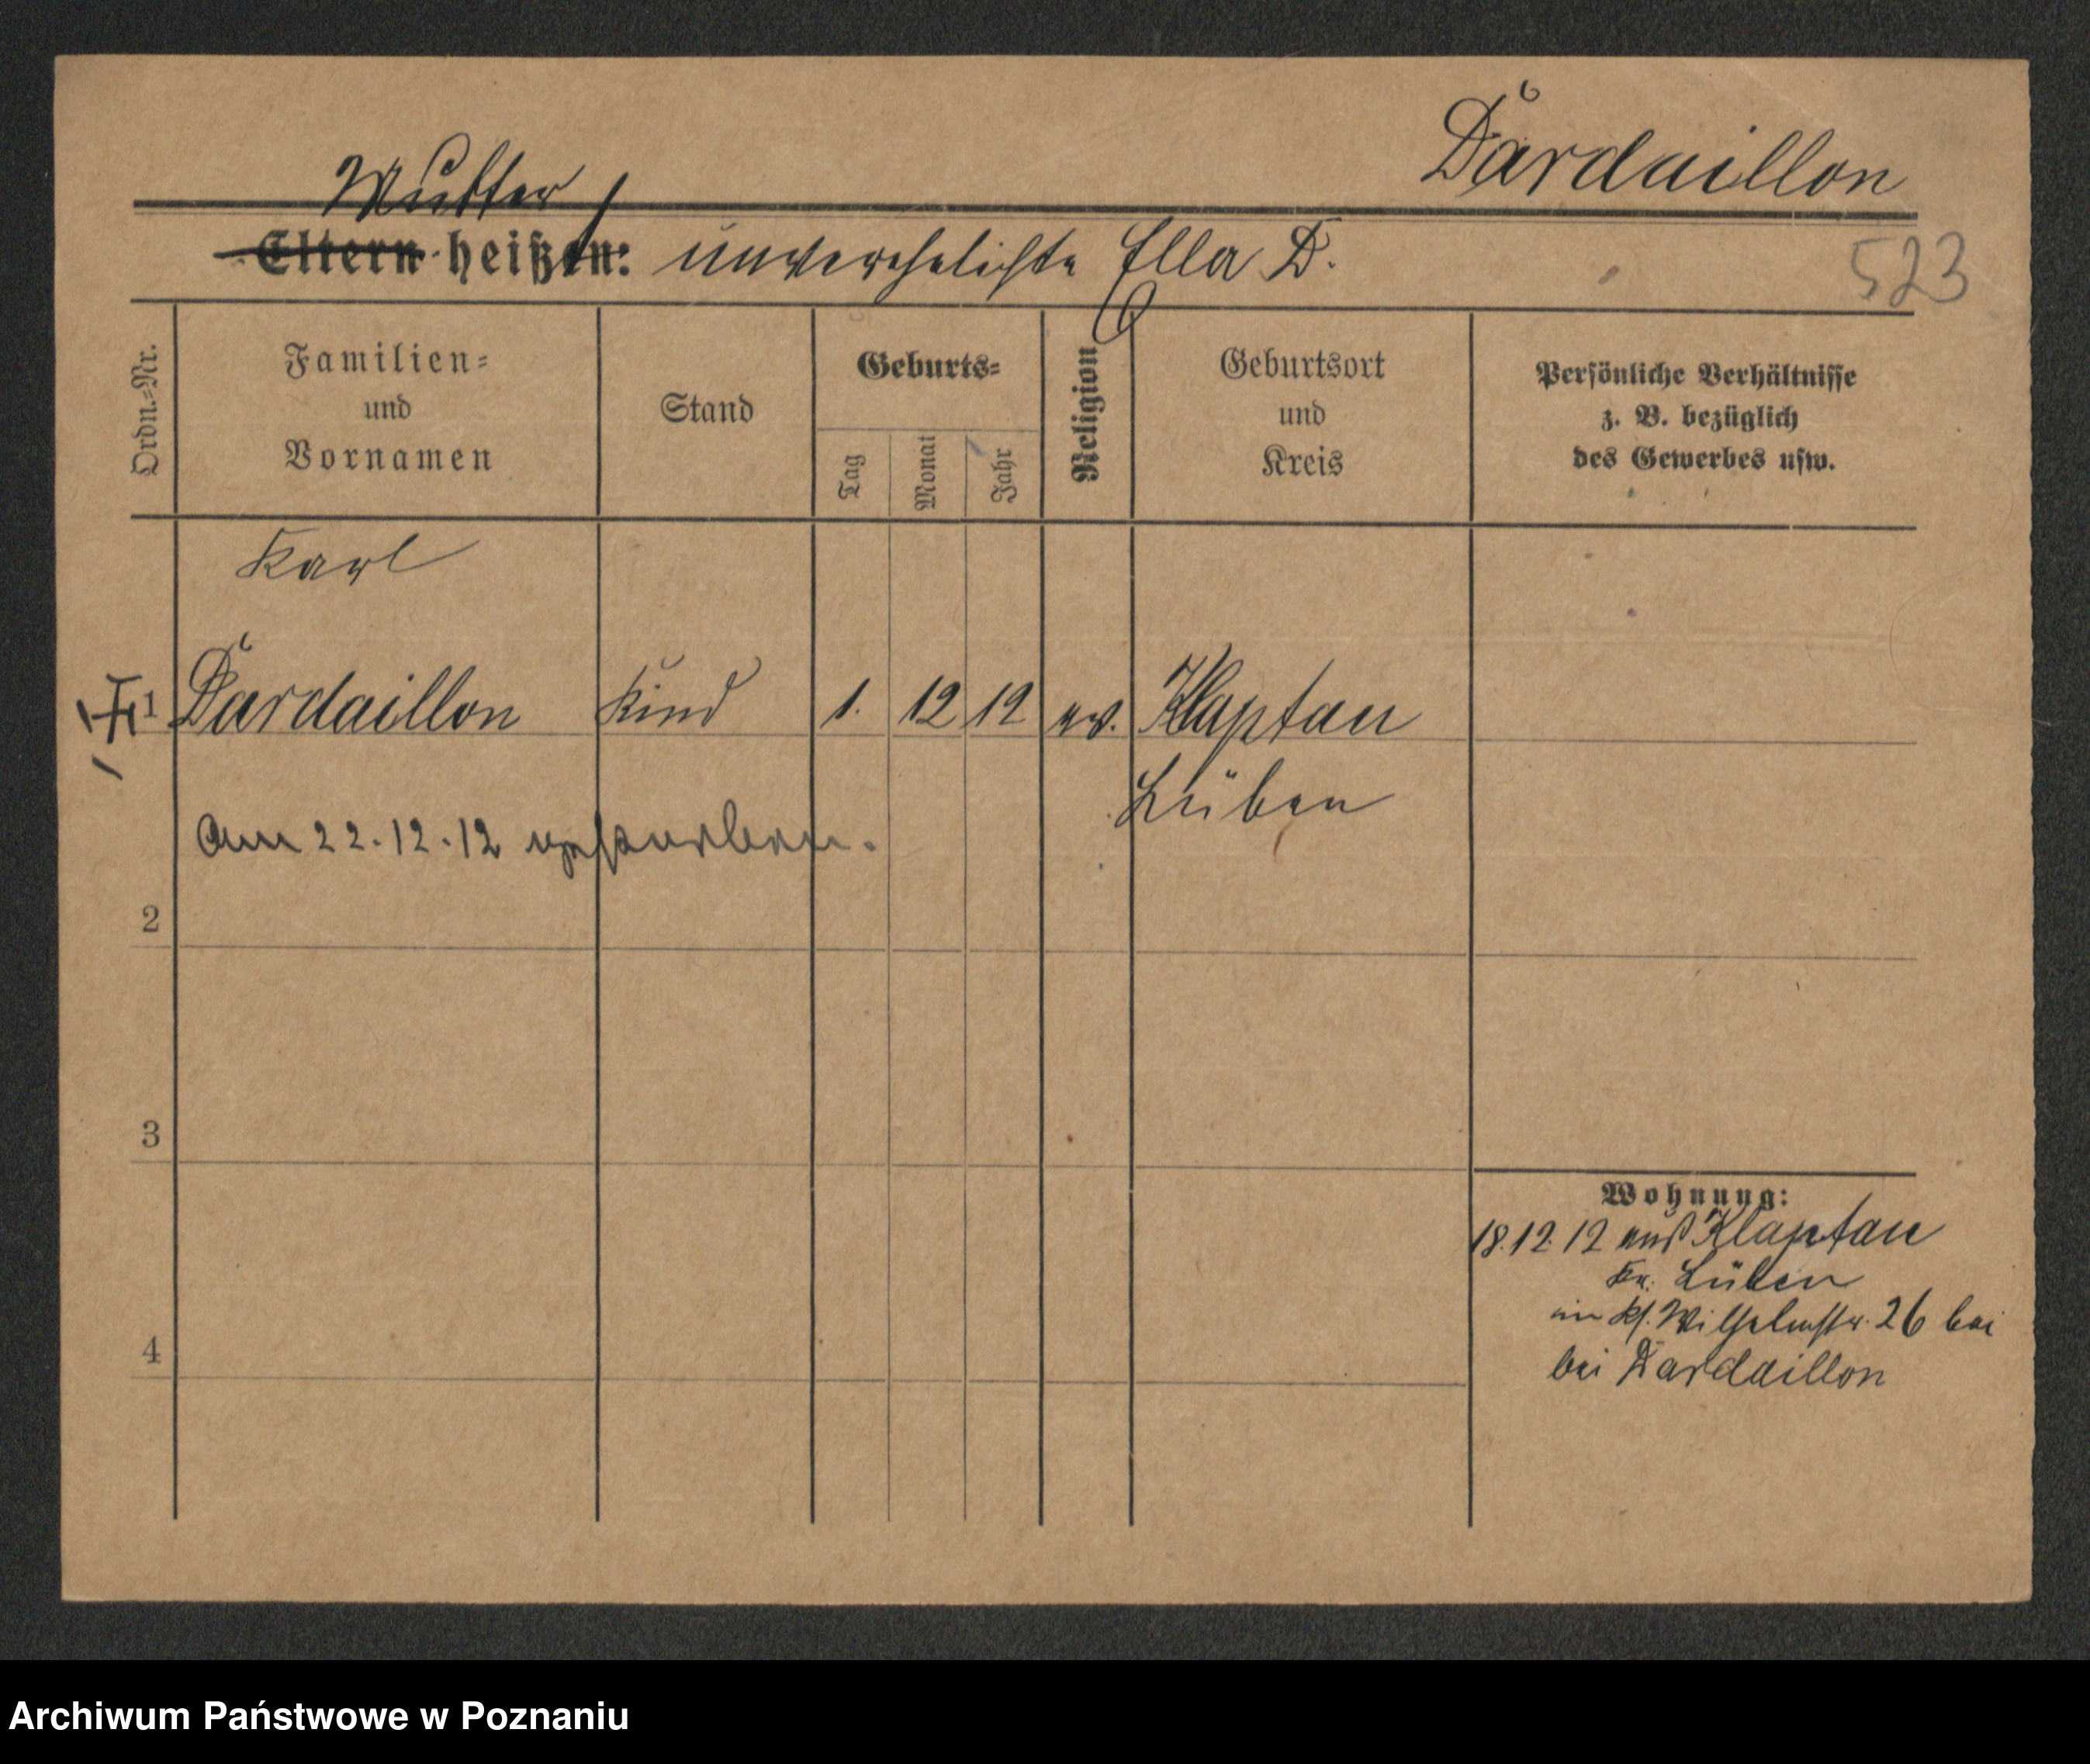 Dardaillon
Mutter
Eltern heißen: unverehelichte Ella D.
523
Ordn.-Nr.
Familien-
und
Vornamen
Stand
Geburts-
Tag
Monat
Jahr
Religion
Geburtsort
und
Kreis
Persönliche Verhältnisse
z. B. bezüglich
des Gewerbes usw.
Karl
1 Dardaillon Kind 1. 12 12 ev. Klaptau
Lüben
Am 22.12.12 gestorben.
2
3
4
Wohnung:
18.12.12 aus Klaptau
Kr. Lüben
in Wilhelmstr. 26 bei
bei Dardaillon
Archiwum Państwowe w Poznaniu